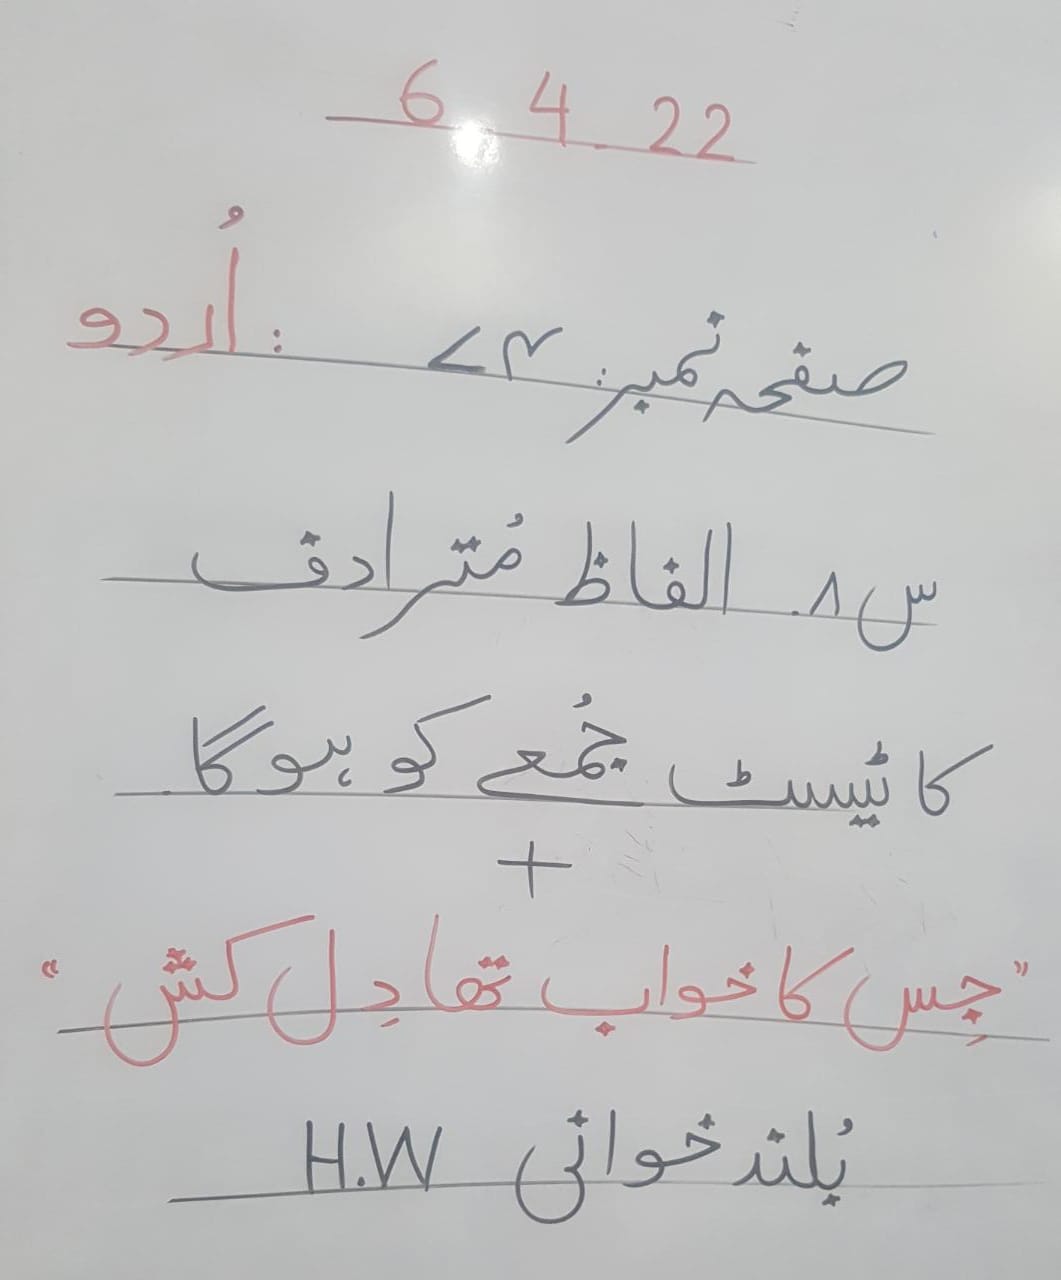 6.4.22
اُردو :
صفحہ نمبر: ۷۳
س ۸. الفاظ مُترادف
کا ٹیسٹ جُمعے کو ہو گا
+
"جِس کا خواب تھا دِل کش"
بُلند خوانی H.W